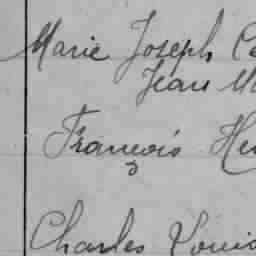 Marie Joseph
Jean
François
Charles Louis